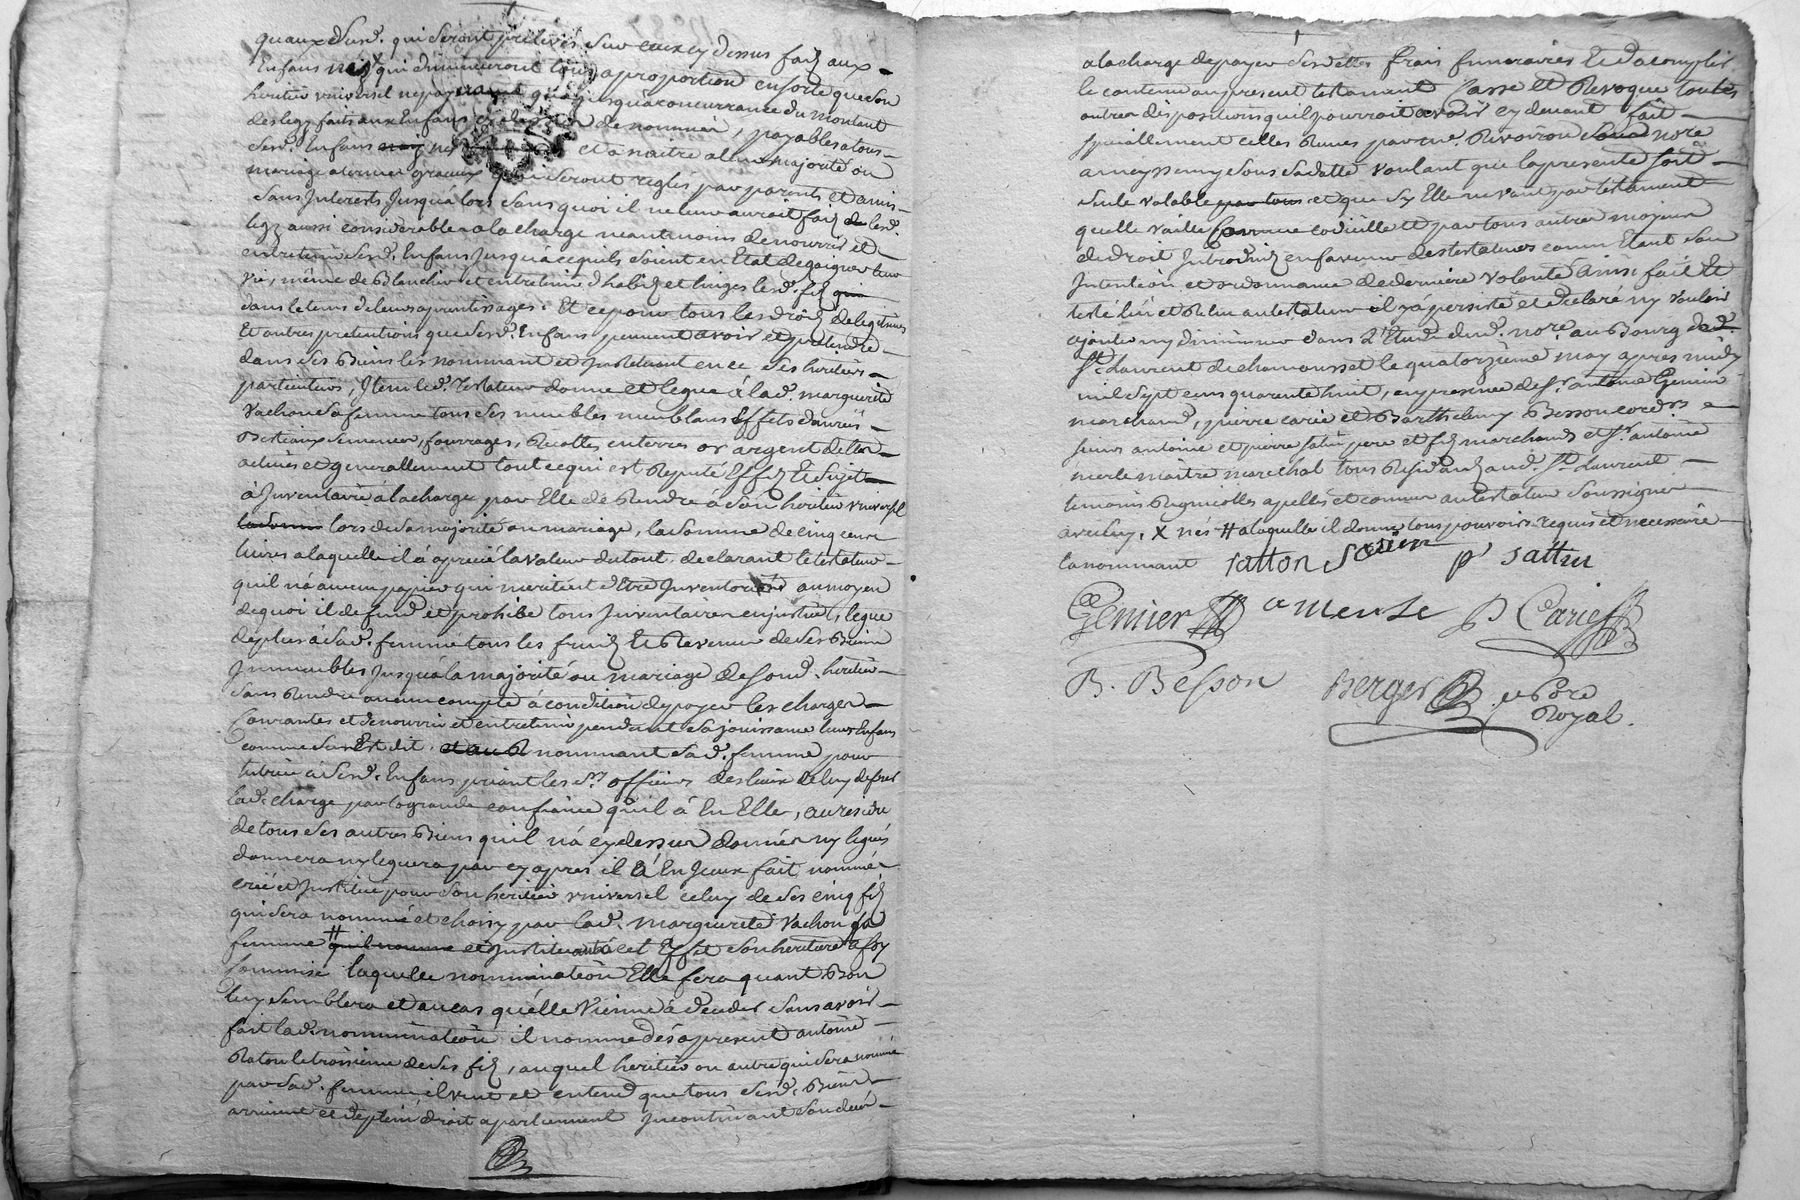 quaux dsusd. qui seront prelevés sur ceux cy dessus faiz aux
Enfans nés qui diminueront tous a proportion en sorte que son
heritier universel ne payera que jusqu'a concurrance du montant
des legz faits aux Enfans de nommer, payables a tous
sesd. Enfans nés et a naitre a leur majorité ou
mariage a termes gracieux qui seront reglés par parents et amis
sans Interests Jusqu'á lors sans quoi il ne leur auroit faiz lesd.
legz aussi considerables a la charge neantmoins de nourrir et
entretenir sesd. Enfans Jusqu'á ce qu'ils soient en Etat de gaigner leur
vie, même de Blanchir et entretenir d'habiz et linges lesd. fiz
dans le tems de leurs aprentissages. Et ce pour tous les droiz de legitimes
Et autres pretentions que sesd. Enfans peuvent avoir et pretendre
dans ses Biens les nommant et Instituant en ce ses heritiers
particuliers, Item led. Testateur donne et legue á lad. marguerite
Vachon sa femme tous ses meubles meublans Effets danrées
Bestiaux semences, fourrages, Recoltes enterres or argent dettes
actives et generallement tout ce qui est Reputé Effez Et sujet
á Inventaire á la charge par Elle de Rendre á son heritier universel
lors de sa majorité ou mariage, la somme de cinq cens
livres a laquelle il á aprecié la valeur du tout declarant le testateur
quil ná aucun papier qui meritent d'Etre Inventoriés au moyen
de quoi il defend et prohibe tous Inventaires en justice, legue
de plus á sad. femme tous les fruiz Et Revenus de ses Biens
Immeubles Jusqu'á la majorité ou mariage de sond. heritier
sans Rendre aucun compte á condition de payer les charges
Courantes et de nourrir et entretenir pendant sa jouissance leurs Enfans
comme sus Est dit. nommant sad. femme pour
tutrice á sesd. Enfans priant les Srs officiers des lieux de luy deferer
lad. charge par la grande confiance qu'il á En Elle, au residu
de tous ses autres Biens qu'il n'á cy dessus donnés ny legués
donnera ny leguera par cy apres il á En Iceux fait nommé
créé et Institué pour son heritier universel celuy de ses cinq fiz
qui sera nommé et choisy par lad. marguerite Vachon sa
femme # et Instituant á cet Effet son heritiere a foy
commise laquelle nomination Elle fera quant Bon
luy semblera et au cas qu'elle Vienne á deceder sans avoir
fait lad. nomination il nomme des á present antoine
Raton le troisieme de ses fiz, auquel heritier ou autre qui sera nommé
par sad. femme il veut et entend que tous sesd. Biens
arrivent et de plein droit apartiennent Incontinant son deces
a la charge de payer ses dettes frais funeraires Et d'acomplir
le contenu au present testament Casse et Revoque toutes
autres dispositions qu'il pourroit avoir cy devant fait
specialement celles Reçues par me. Rivoiron nore
a meyssemy sous sa datte voulant que la presente soit
seule valable et que sy Elle ne vaut par testament
quelle vaille comme codicille et par tous autres moyens
de droit Introduiz en faveur des testateurs comm Etant son
Intention et ordonnance de derniere volonté ainsi fait Et
testé lû et Relu au testateur il y á persisté et declaré ny vouloir
ajouter ny diminuer dans l'Etude dud. nore. au Bourg dud.
St. Laurent de chamousset le quatorzieme may apres midy
mil sept cens quarante huit, en presence de sr. antoine Genier
marchand, pierre carié et Barthelemy Besson cordrs.
sieurs antoine et pierre satin pere et fiz marchands et sr. antoine
merle maitre marechal tous Residants aud. St. Laurent
temoins Regnicolles apellés et connus au testateur soussignés
avec luy. X nés # a laquelle il donne tous pouvoirs requis et necessaire
la nommant ratton Satin p satin
Genier a merle P Carié
B. Besson Berger nore
Royal.